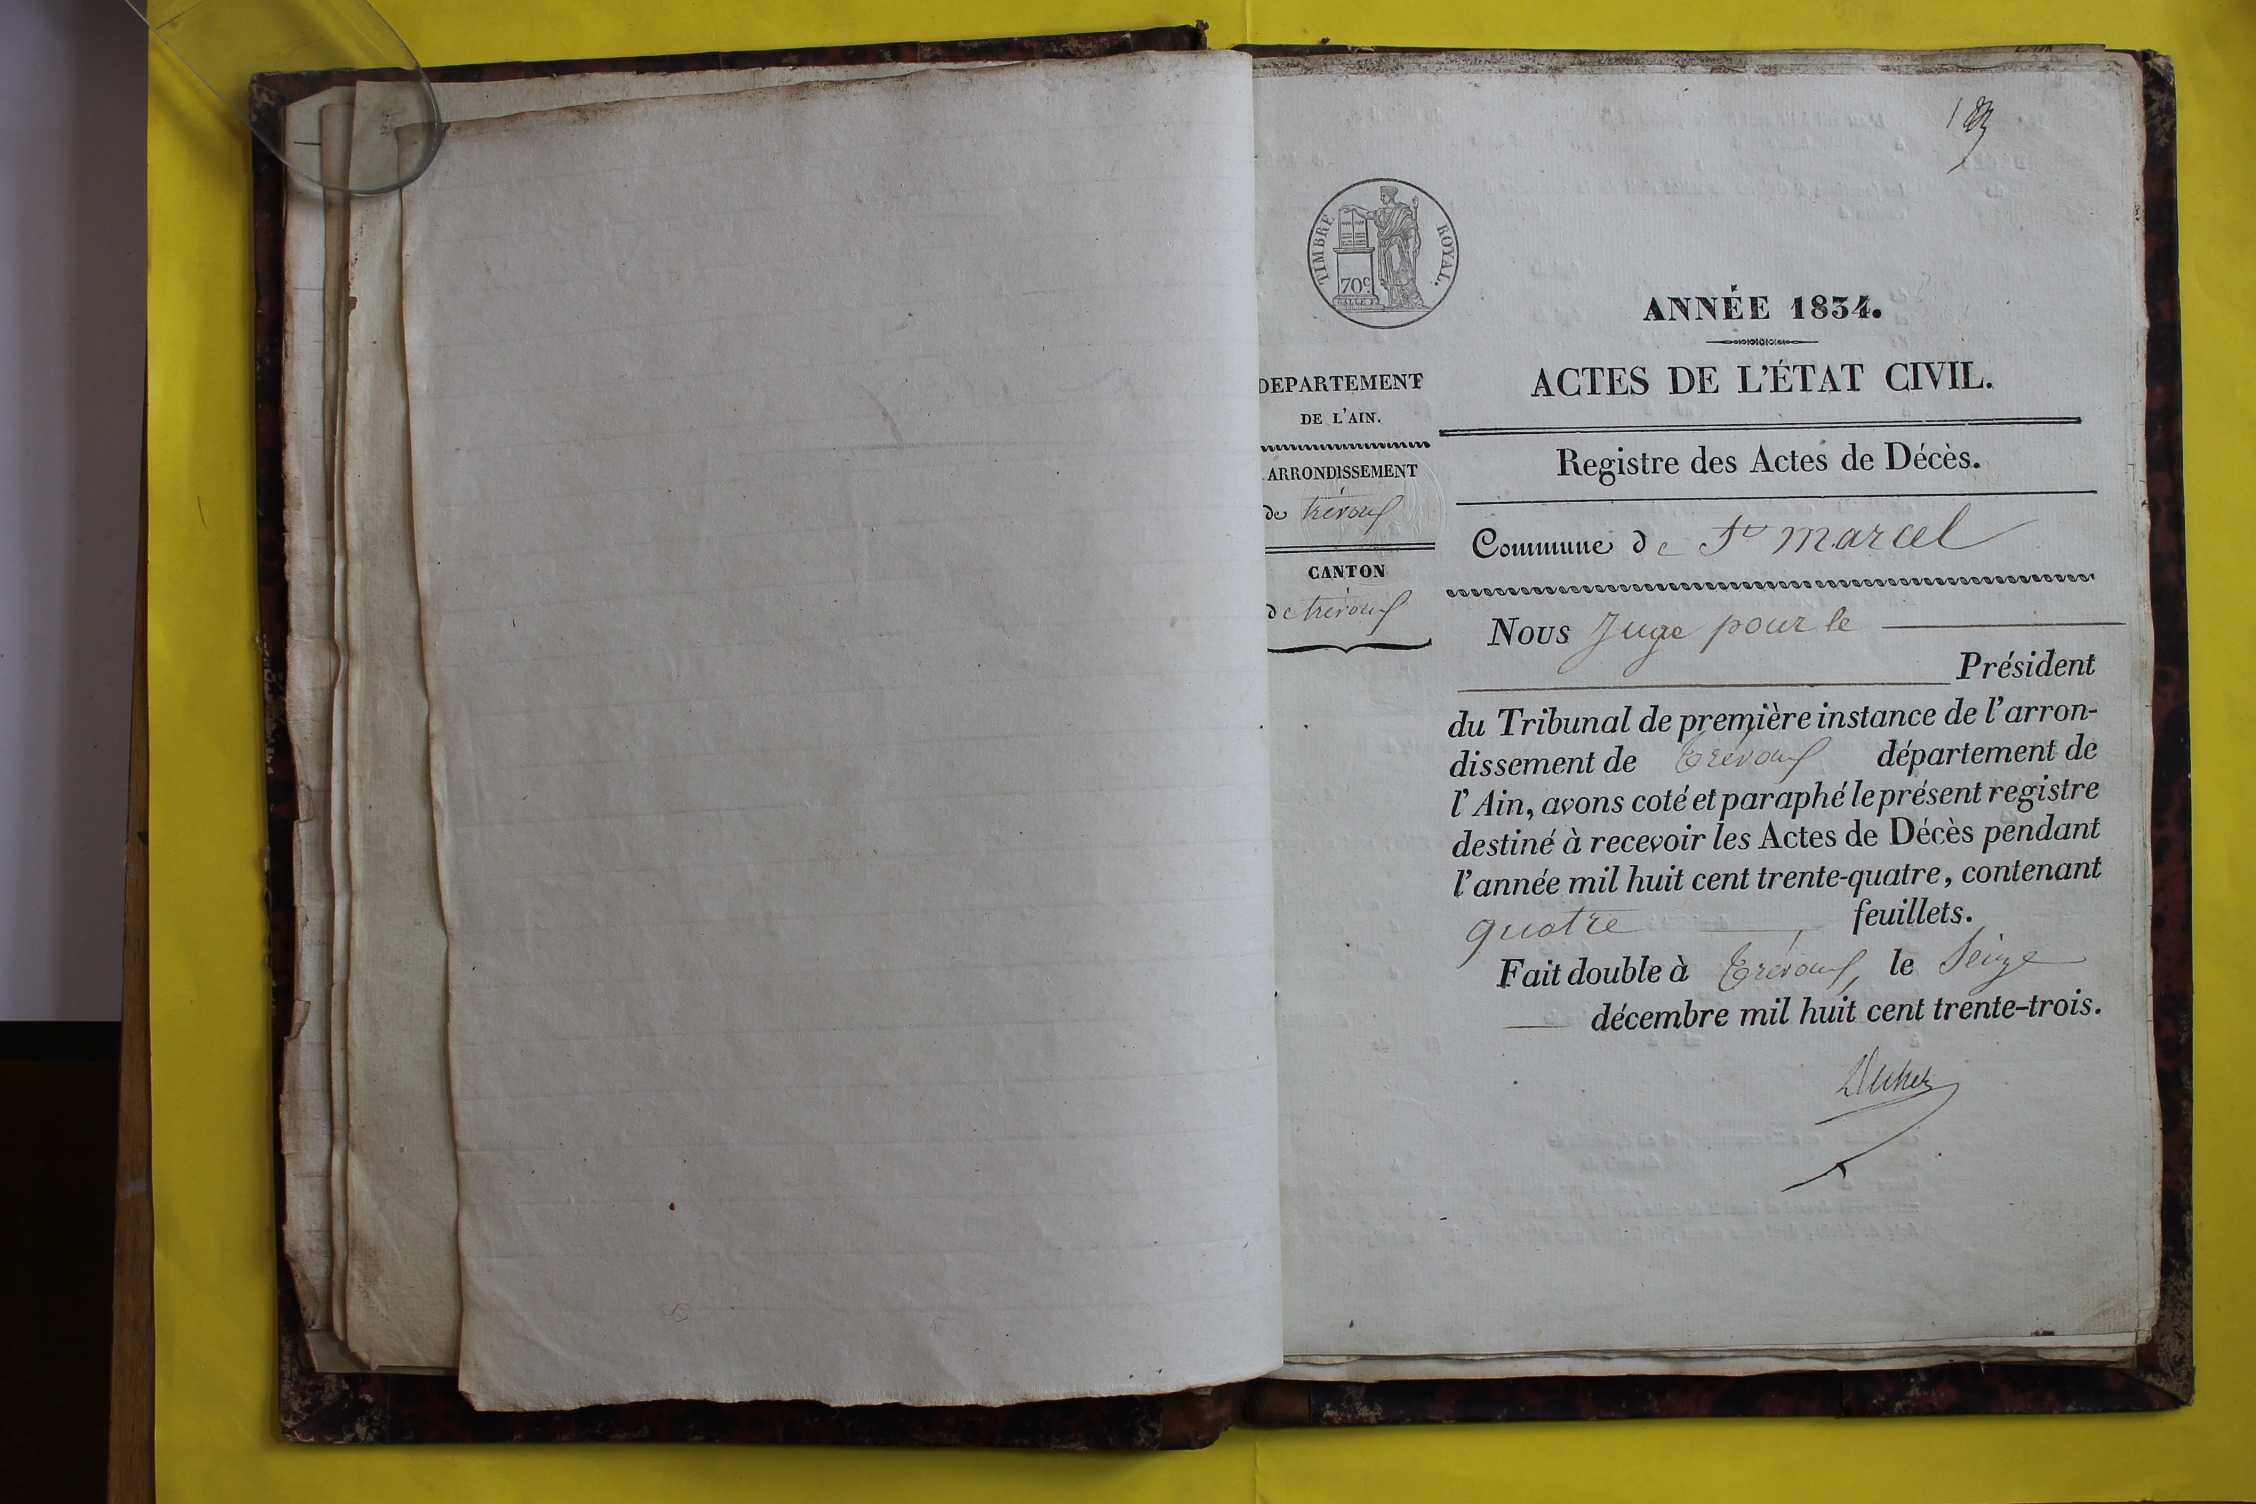 TIMBRE ROYAL.
70c.
ANNÉE 1834.
ACTES DE L'ÉTAT CIVIL.
DEPARTEMENT
DE L'AIN.
ARRONDISSEMENT
de trévoux
CANTON
de trévoux
Registre des Actes de Décès.
Commune de St marcel
Nous Juge pour le
Président
du Tribunal de première instance de l'arron-
dissement de Trévoux département de
l'Ain, avons coté et paraphé le présent registre
destiné à recevoir les Actes de Décès pendant
l'année mil huit cent trente-quatre, contenant
quatre feuillets.
Fait double à Trévoux, le Seize
décembre mil huit cent trente-trois.